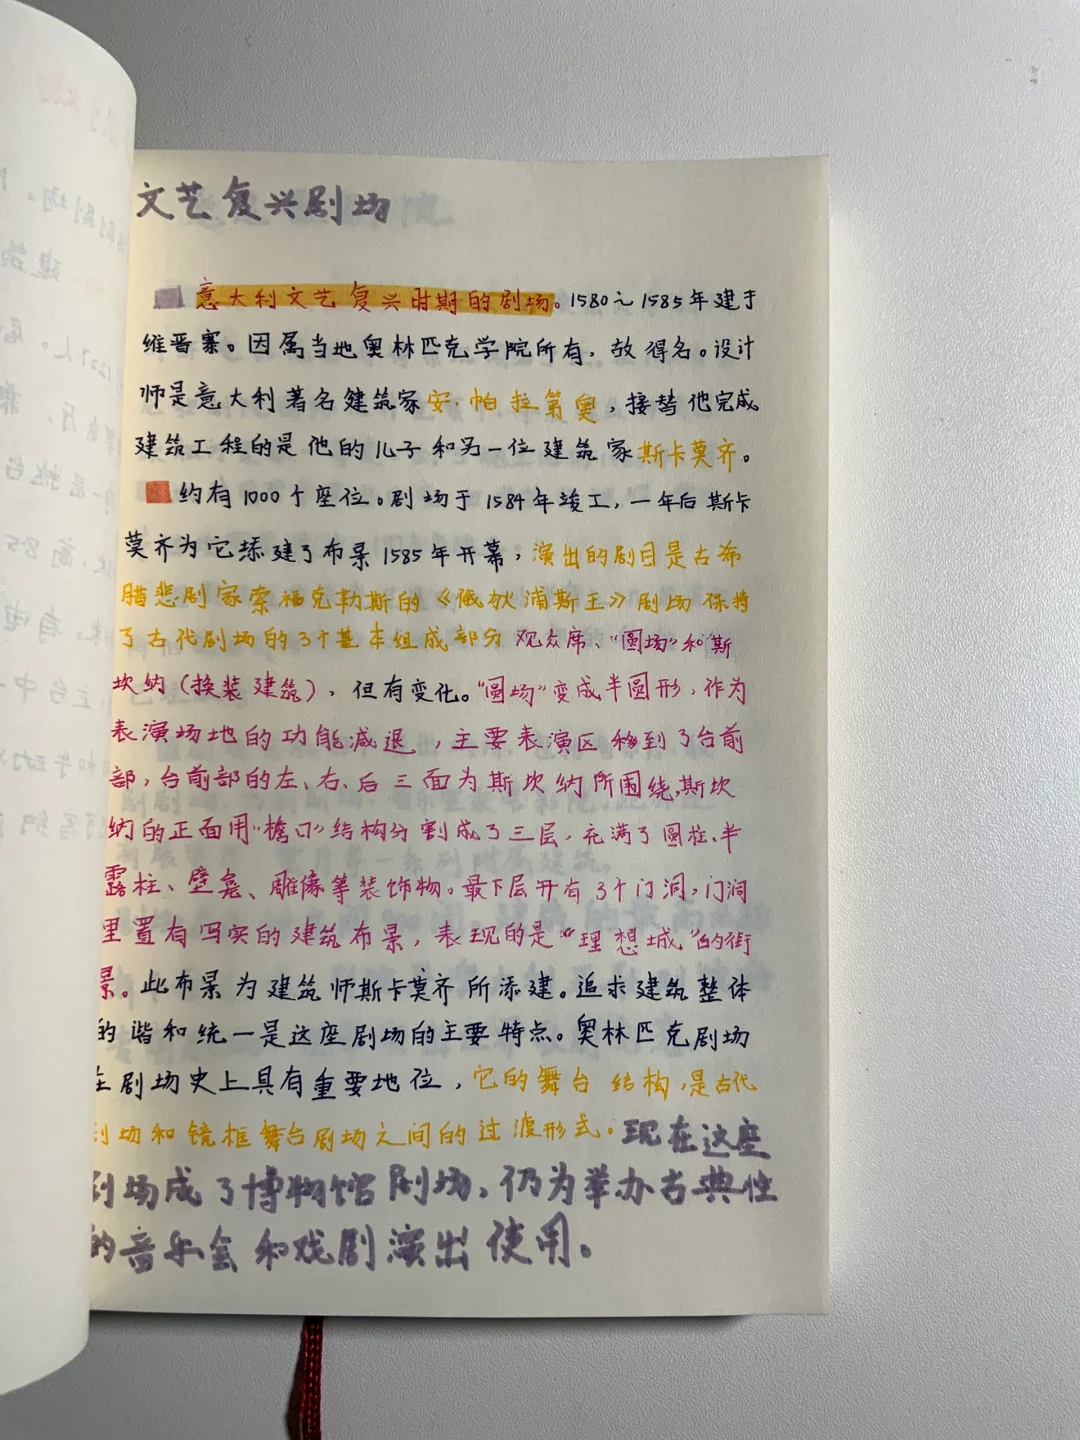 文艺复兴剧场
意大利文艺复兴时期的剧场。1580~1585年建于
维晋寨。因属当地奥林匹克学院所有，故得名。设计
师是意大利著名建筑家安·帕拉第奥，接替他完成
建筑工程的是他的儿子和另一位建筑家斯卡莫齐。
约有1000个座位。剧场于1584年竣工，一年后斯卡
莫齐为它添建了布景1585年开幕，演出的剧目是古希
腊悲剧家索福克勒斯的《俄狄浦斯王》剧场保持
了古代剧场的3个基本组成部分观众席、“圆场”和斯
坎纳（换装建筑），但有变化。“圆场”变成半圆形，作为
表演场地的功能减退，主要表演区移到了台前
部，台前部的左、右、后三面为斯坎纳所围绕，斯坎
纳的正面用“檐口”结构分割成了三层，充满了圆柱、半
露柱、壁龛、雕像等装饰物。最下层开有3个门洞，门洞
里置有写实的建筑布景，表现的是“理想城”的街
景。此布景为建筑师斯卡莫齐所添建。追求建筑整体
的谐和统一是这座剧场的主要特点。奥林匹克剧场
在剧场史上具有重要地位，它的舞台结构，是古代
剧场和镜框舞台剧场之间的过渡形式。现在这座
剧场成了博物馆剧场，仍为举办古典性
的音乐会和戏剧演出使用。